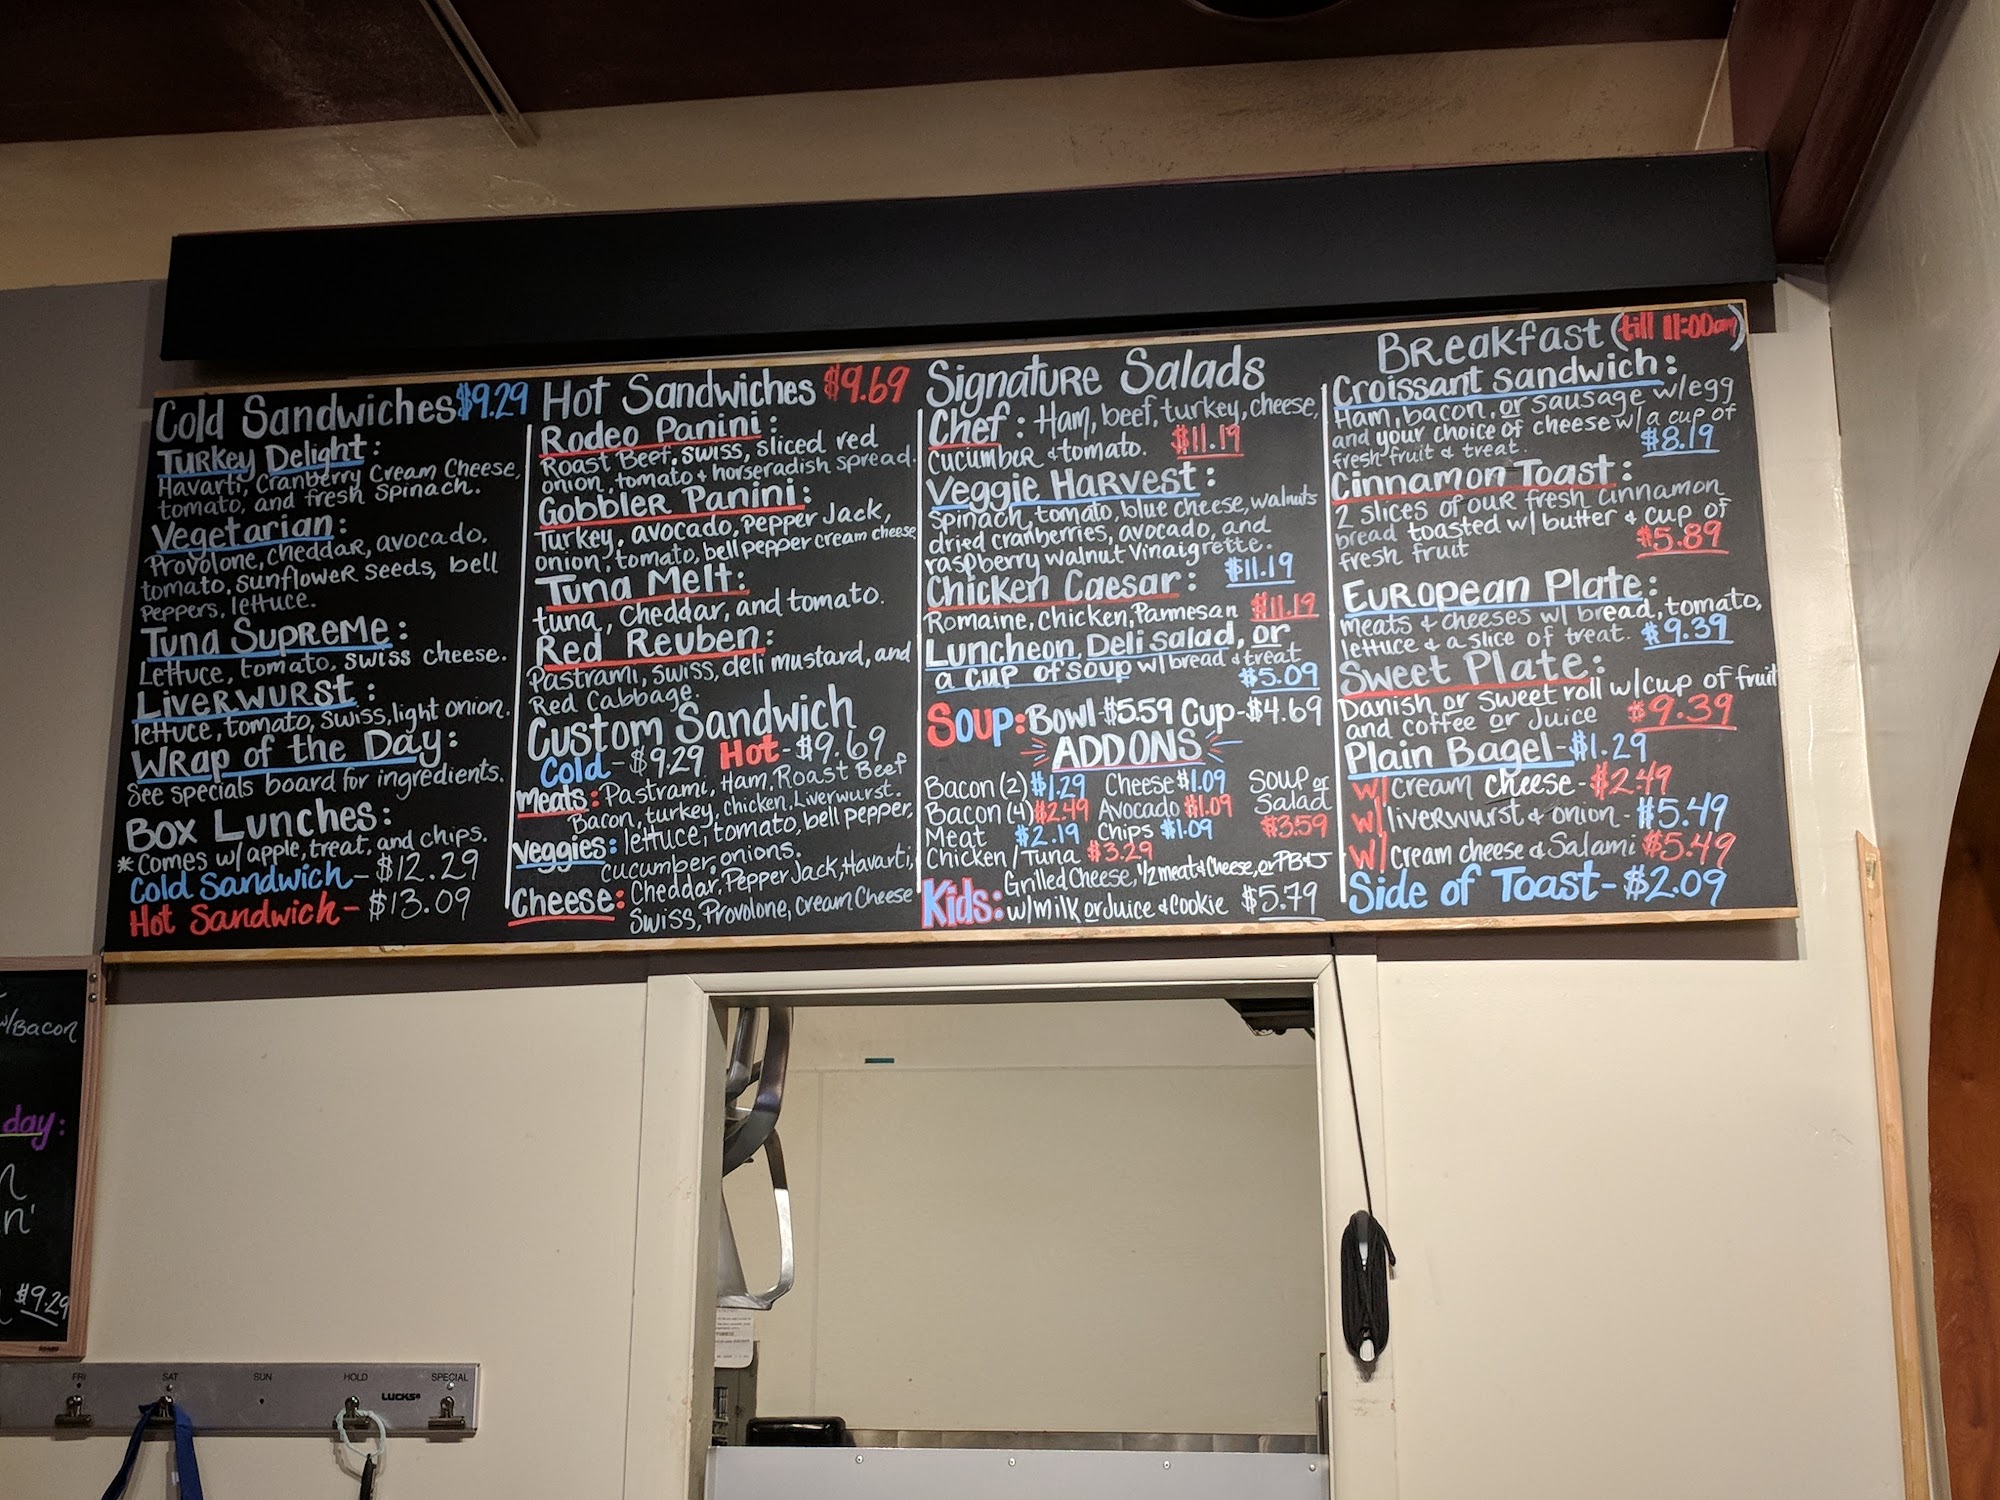 Cold Sandwiches $9.29
Turkey Delight:
Havarti, Cranberry Cream Cheese,
tomato, and fresh Spinach.
Vegetarian:
Provolone, cheddar, avocado,
tomato, sunflower seeds, bell
Peppers, lettuce.
Tuna Supreme:
Lettuce, tomato, swiss cheese.
Liverwurst:
lettuce, tomato, swiss, light onion.
Wrap of the Day:
See specials board for ingredients.
Box Lunches:
*Comes w/ apple, treat, and chips.
Cold Sandwich - $12.29
Hot Sandwich - $13.09
Hot Sandwiches $9.69
Rodeo Panini:
Roast Beef, swiss, sliced red
onion, tomato + horseradish spread.
Gobbler Panini:
Turkey, avocado, Pepper Jack,
onion, tomato, bell pepper cream cheese
Tuna Melt:
tuna, Cheddar, and tomato.
Red Reuben:
Pastrami, swiss, deli mustard, and
Red Cabbage.
Custom Sandwich
Cold - $9.29 Hot - $9.69
Meats: Pastrami, Ham, Roast Beef
Bacon, turkey, chicken, Liverwurst.
Veggies: lettuce, tomato, bell pepper,
cucumber, onions.
Cheese: Cheddar, Pepper Jack, Havarti,
Swiss, Provolone, Cream Cheese
Signature Salads
Chef: Ham, beef, turkey, cheese,
cucumber + tomato. $11.19
Veggie Harvest:
Spinach, tomato, blue cheese, walnuts
dried cranberries, avocado, and
raspberry walnut Vinaigrette.
$11.19
Chicken Caesar:
Romaine, chicken, Parmesan $11.19
Luncheon, Deli Salad, or
a cup of soup w/ bread + treat
$5.09
Soup: Bowl - $5.59 Cup - $4.69
ADD ONS
Bacon (2) $1.29 Cheese $1.09 Soup or
Bacon (4) $2.49 Avocado $1.09 Salad
Meat $2.19 Chips $1.09 $3.59
Chicken / Tuna $3.29
Grilled Cheese, 1/2 meat + Cheese, or PB+J
Kids: w/ milk or Juice + Cookie $5.79
Breakfast (till 11:00am)
Croissant Sandwich:
Ham, bacon, or sausage w/ egg
and your choice of cheese w/ a cup of
fresh fruit + treat. $8.19
Cinnamon Toast:
2 slices of our fresh cinnamon
bread toasted w/ butter + cup of
fresh fruit $5.89
European Plate:
Meats + cheeses w/ bread, tomato,
lettuce + a slice of treat. $9.39
Sweet Plate:
Danish or Sweet roll w/ cup of fruit
and coffee or Juice $9.39
Plain Bagel - $1.29
w/ cream cheese - $2.49
w/ liverwurst + onion - $5.49
w/ cream cheese + Salami $5.49
Side of Toast - $2.09
w/ Bacon
day:
n'
$9.29
FRI SAT SUN HOLD LUCKS SPECIAL